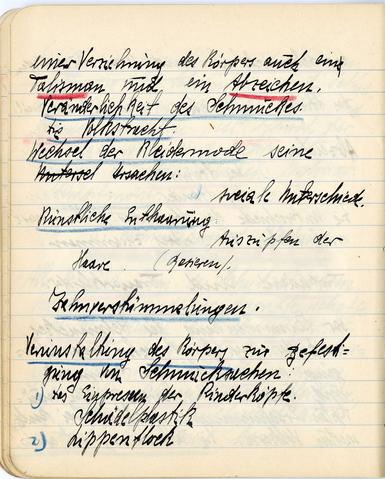 einer Verziehrung des Körpers auch ein
Talisman und ein Abzeichen.
Veränderlichkeit des Schmuckes
die Volkstracht
Wechsel der Kleidermode seine
Ursachen:
1) soziale Unterschiede.
Künstliche Enthaarung:
Auszupfen der
Haare.
Zahnverstümmelungen.
Verunstaltung des Körpers zur Befesti-
gung von Schmucksachen:
1) das Einpressen der Kinderköpfe.
Schädelplastik
2) Lippenpflock